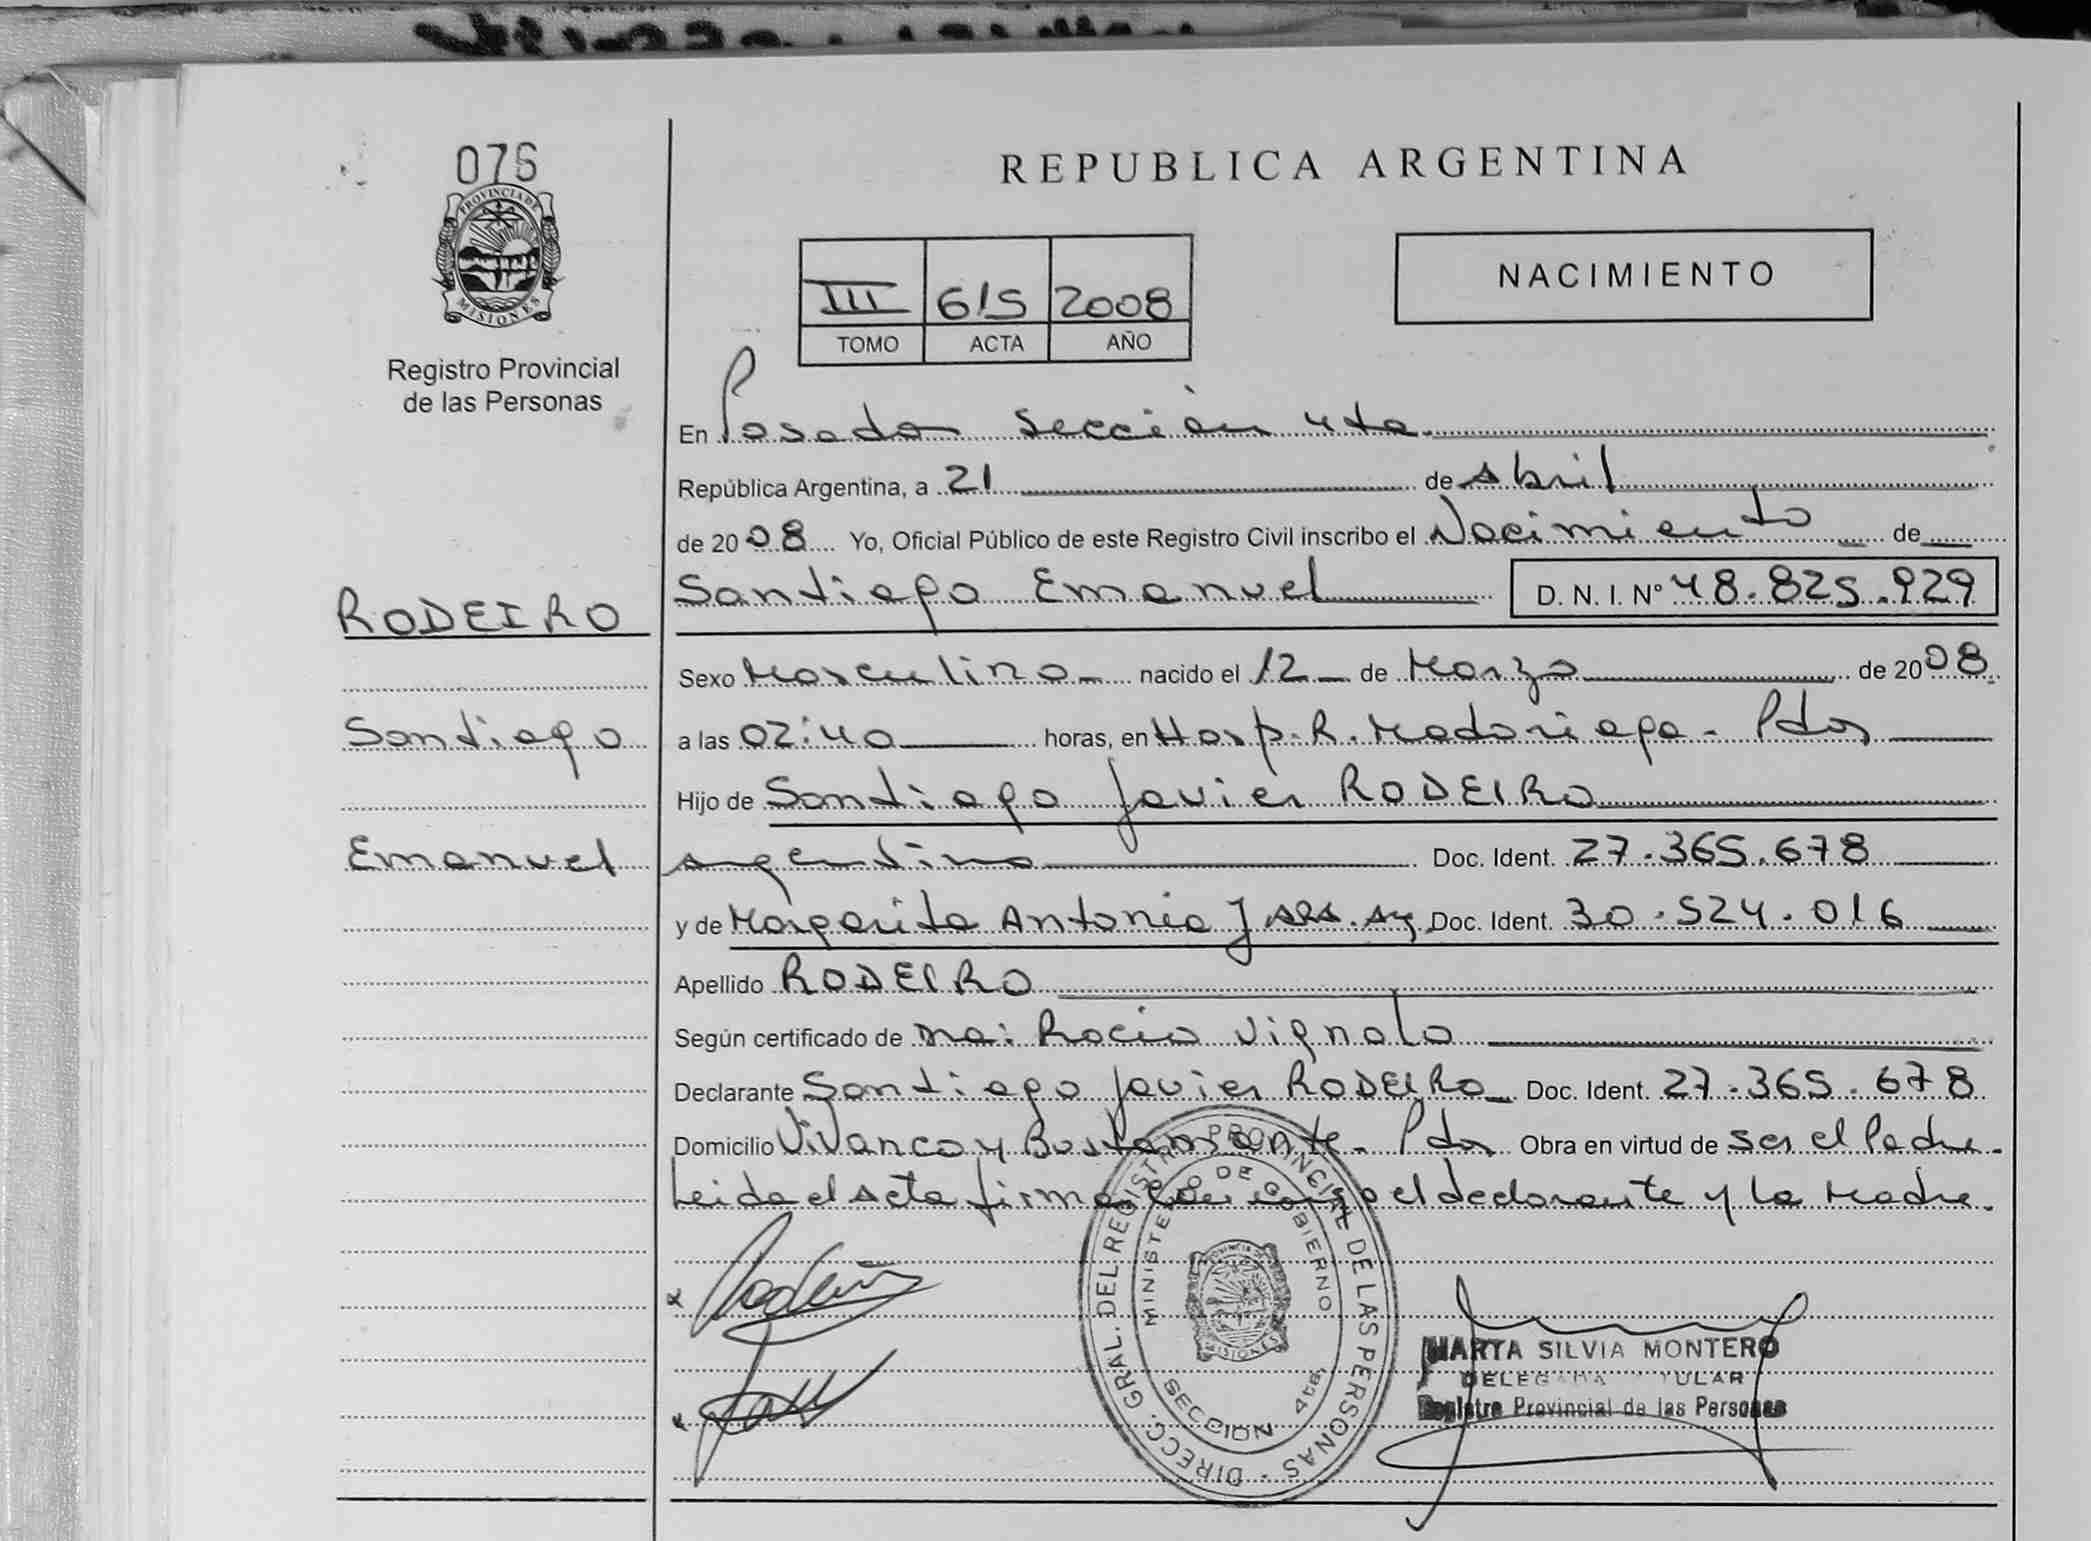 076
PROVINCIA DE
MISIONES
Registro Provincial
de las Personas
REPUBLICA ARGENTINA
III 615 2008
TOMO ACTA AÑO
NACIMIENTO
En Posadas Sección 4ta
República Argentina, a 21 de Abril
de 2008 Yo, Oficial Público de este Registro Civil inscribo el Nacimiento de
RODEIRO
Santiago
Emanuel
Santiago Emanuel D. N. I. Nº 48.825.929
Sexo Masculino nacido el 12 de Marzo de 2008
a las 02:40 horas, en Hosp. R. Madariaga - Pdas
Hijo de Santiago Javier RODEIRO
argentino Doc. Ident. 27.365.678
y de Margarita Antonia Doc. Ident. 30.524.016
Apellido RODEIRO
Según certificado de Rocio Vignolo
Declarante Santiago Javier RODEIRO Doc. Ident. 27.365.678
Domicilio Vivanco y Bustamante - Pdas Obra en virtud de ser el Padre.
Leida el Acta firman el declarante y la Madre.
DIRECC. GRAL. DEL REGISTRO PROVINCIAL DE LAS PERSONAS
MINISTERIO DE GOBIERNO
SECCION 4ta.
PROVINCIA DE
MISIONES
MARTA SILVIA MONTERO
DELEGADA TITULAR
Registro Provincial de las Personas